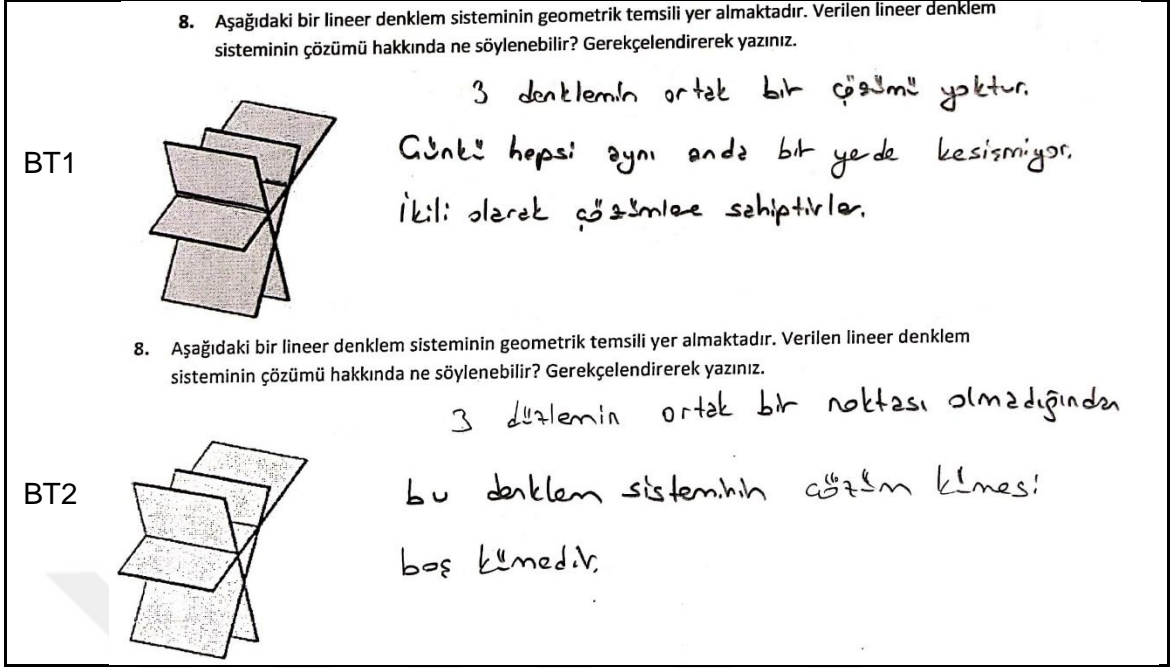 8. Aşağıdaki bir lineer denklem sisteminin geometrik temsili yer almaktadır. Verilen lineer denklem
sisteminin çözümü hakkında ne söylenebilir? Gerekçelendirerek yazınız.
3 denklemin ortak bir çözümü yoktur.
BT1
Çünkü hepsi aynı anda bir yerde kesişmiyor.
İkili olarak çözümlere sahiptirler.
8. Aşağıdaki bir lineer denklem sisteminin geometrik temsili yer almaktadır. Verilen lineer denklem
sisteminin çözümü hakkında ne söylenebilir? Gerekçelendirerek yazınız.
3 düzlemin ortak bir noktası olmadığından
BT2
bu denklem sisteminin çözüm kümesi
boş kümedir.